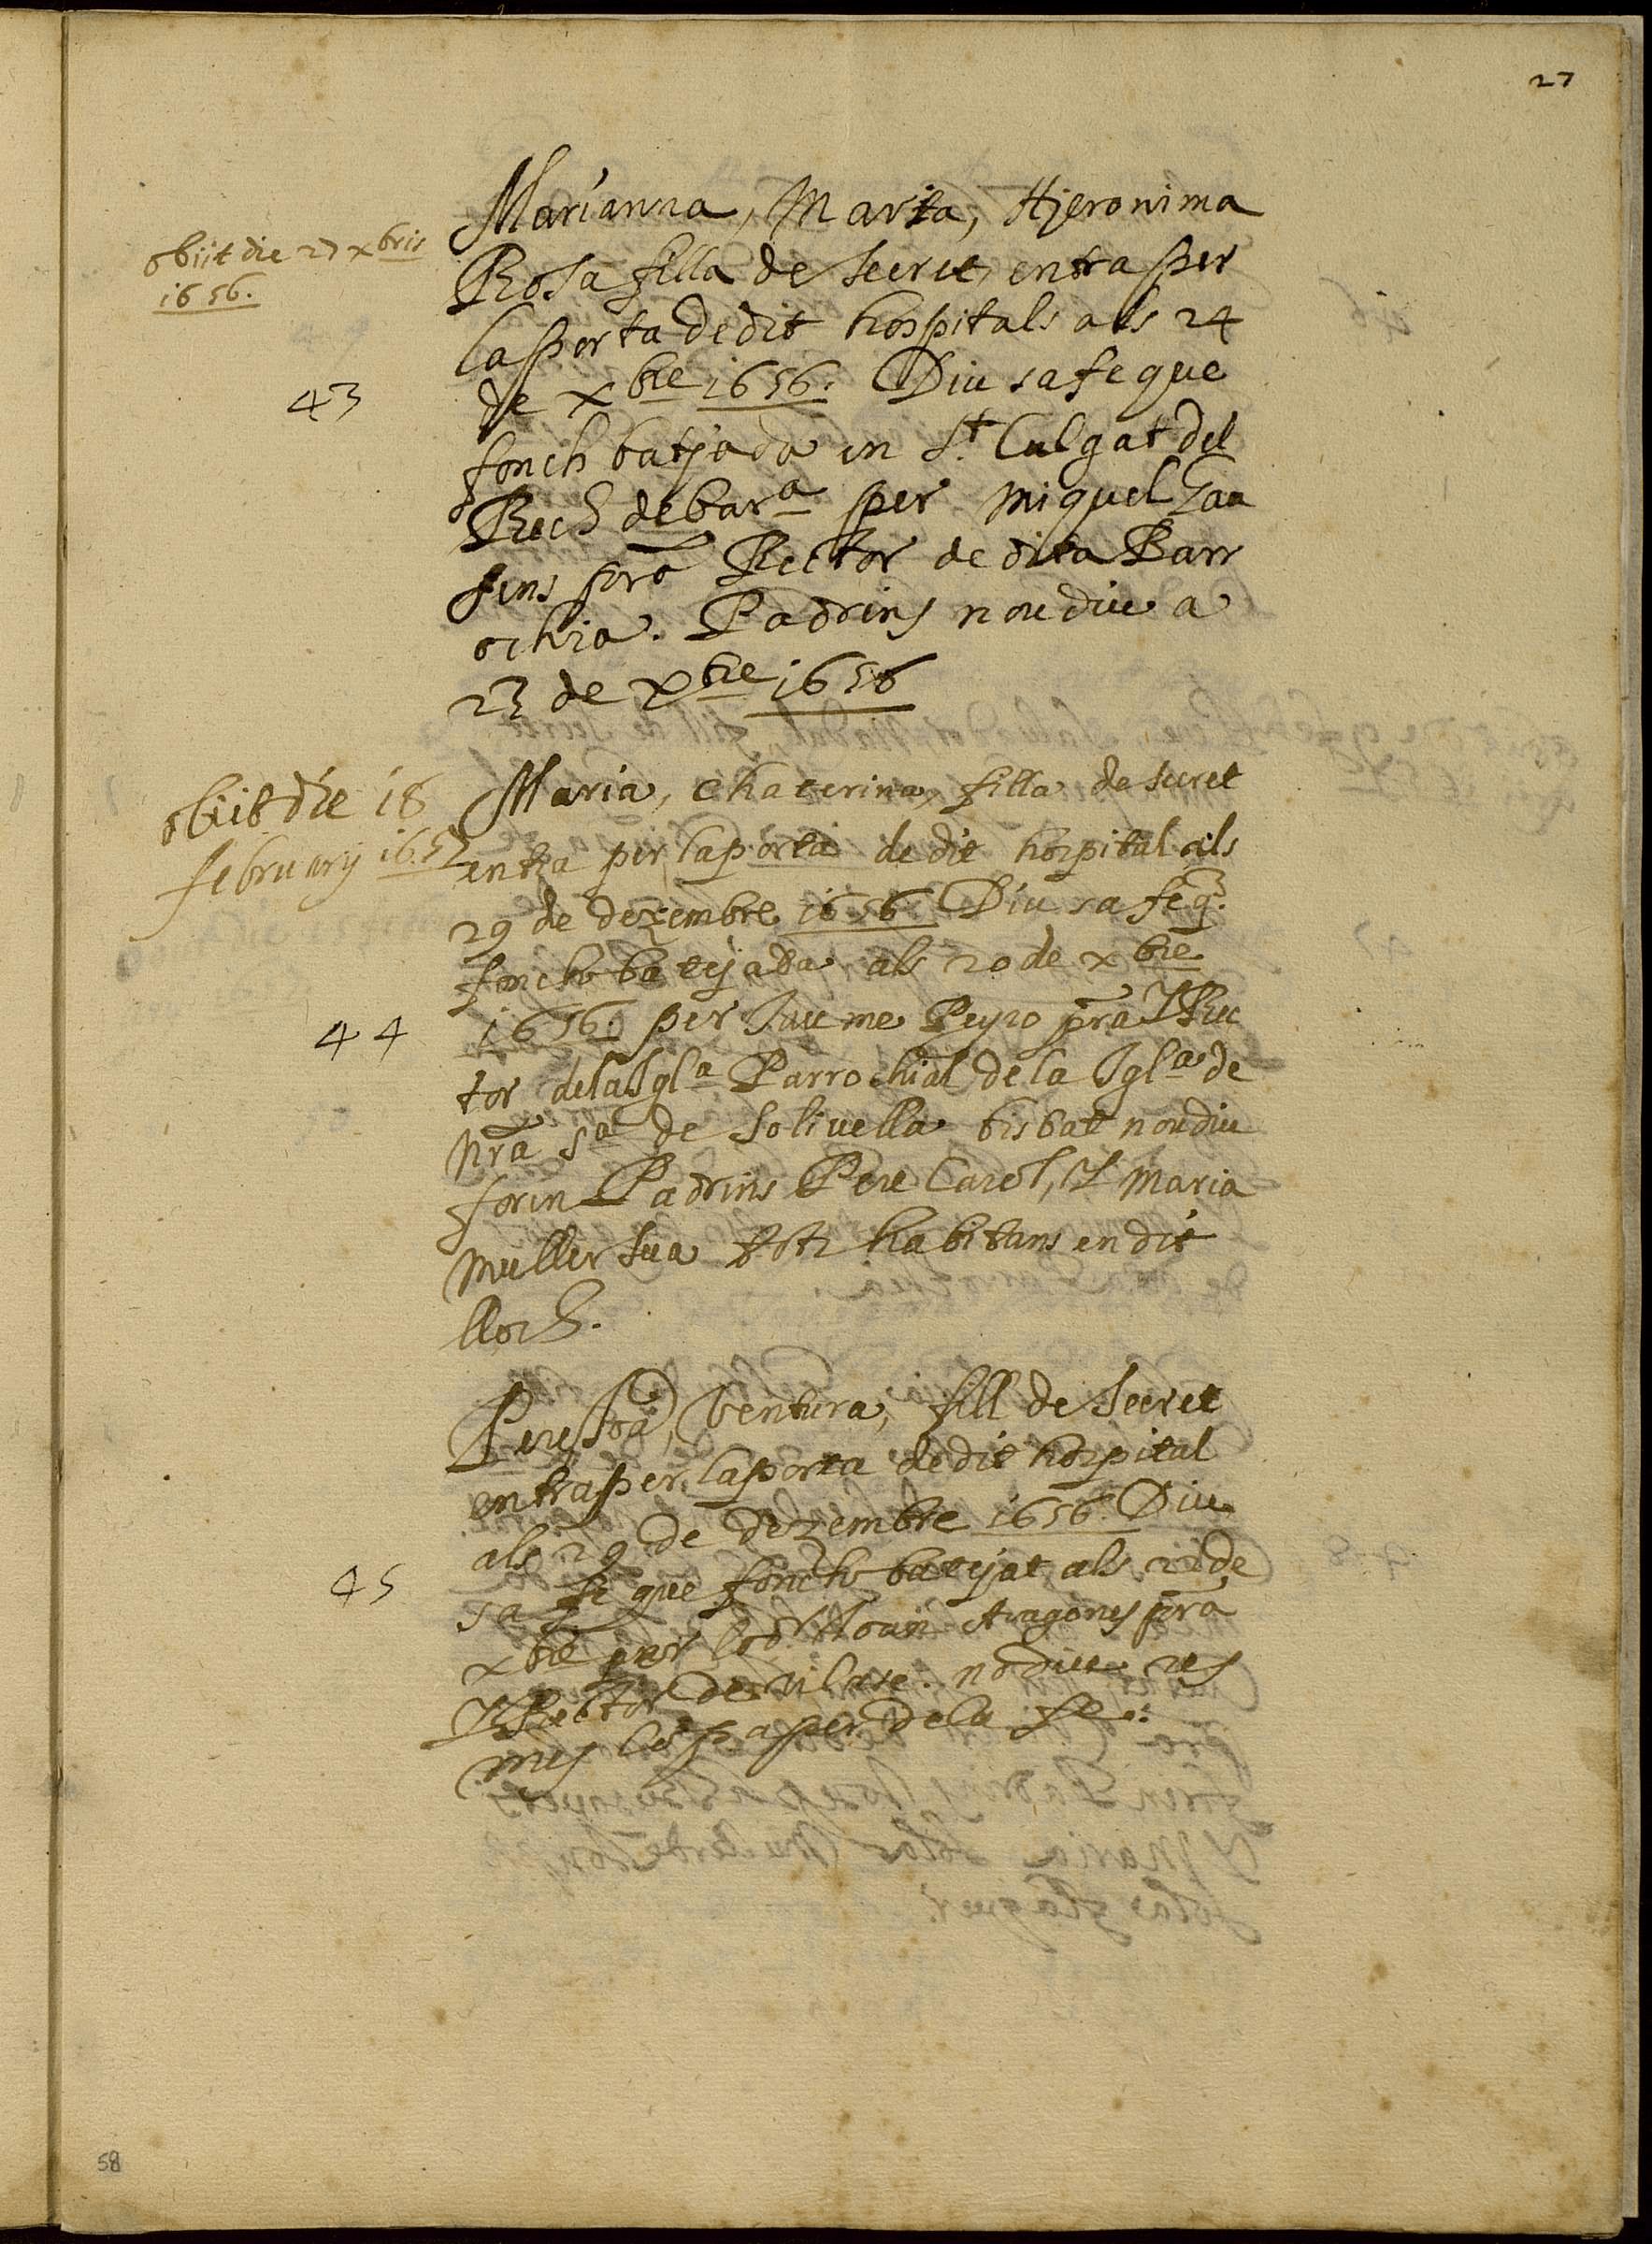 27
Marianna, Marta, Hjeronima
obiit die 27 xbris
1656.
Rosa filla de secret, entra per
la porta de dit hospitals als 24
43
de xbre 1656. Diu sa fe que
fonch batjada en St. Culgat del
Rech de bara per Miquel
pre Rector de dita Parr
ochia. Padrins nou diu a
23 de xbre 1656
Maria, Chaterina, filla de secret
obiit die 18
february 1657
entra per la porta de dit hospital als
29 de dezembre 1656 Diu sa fe q.
fonch batejada als 20 de xbre
44
1656. per Jaume Peyro pra Y Rec
tor de la Igla Parrochial de la Igla de
nra Sa de Solivella bisbat nou diu
foren Padrins Pere Carol, Y Maria
muller sua tots habitans en dit
lloch.
Pere, Joa, Ventura, fill de secret
entra per la porta de dit hospital
als 29 de dezembre 1656. Diu
45
sa fe que fonch batejat als 22 de
xbre per lo Dr Joan Aragones pra
Y Rector de vilase. no diu res
mes lo paper de la fe.
58